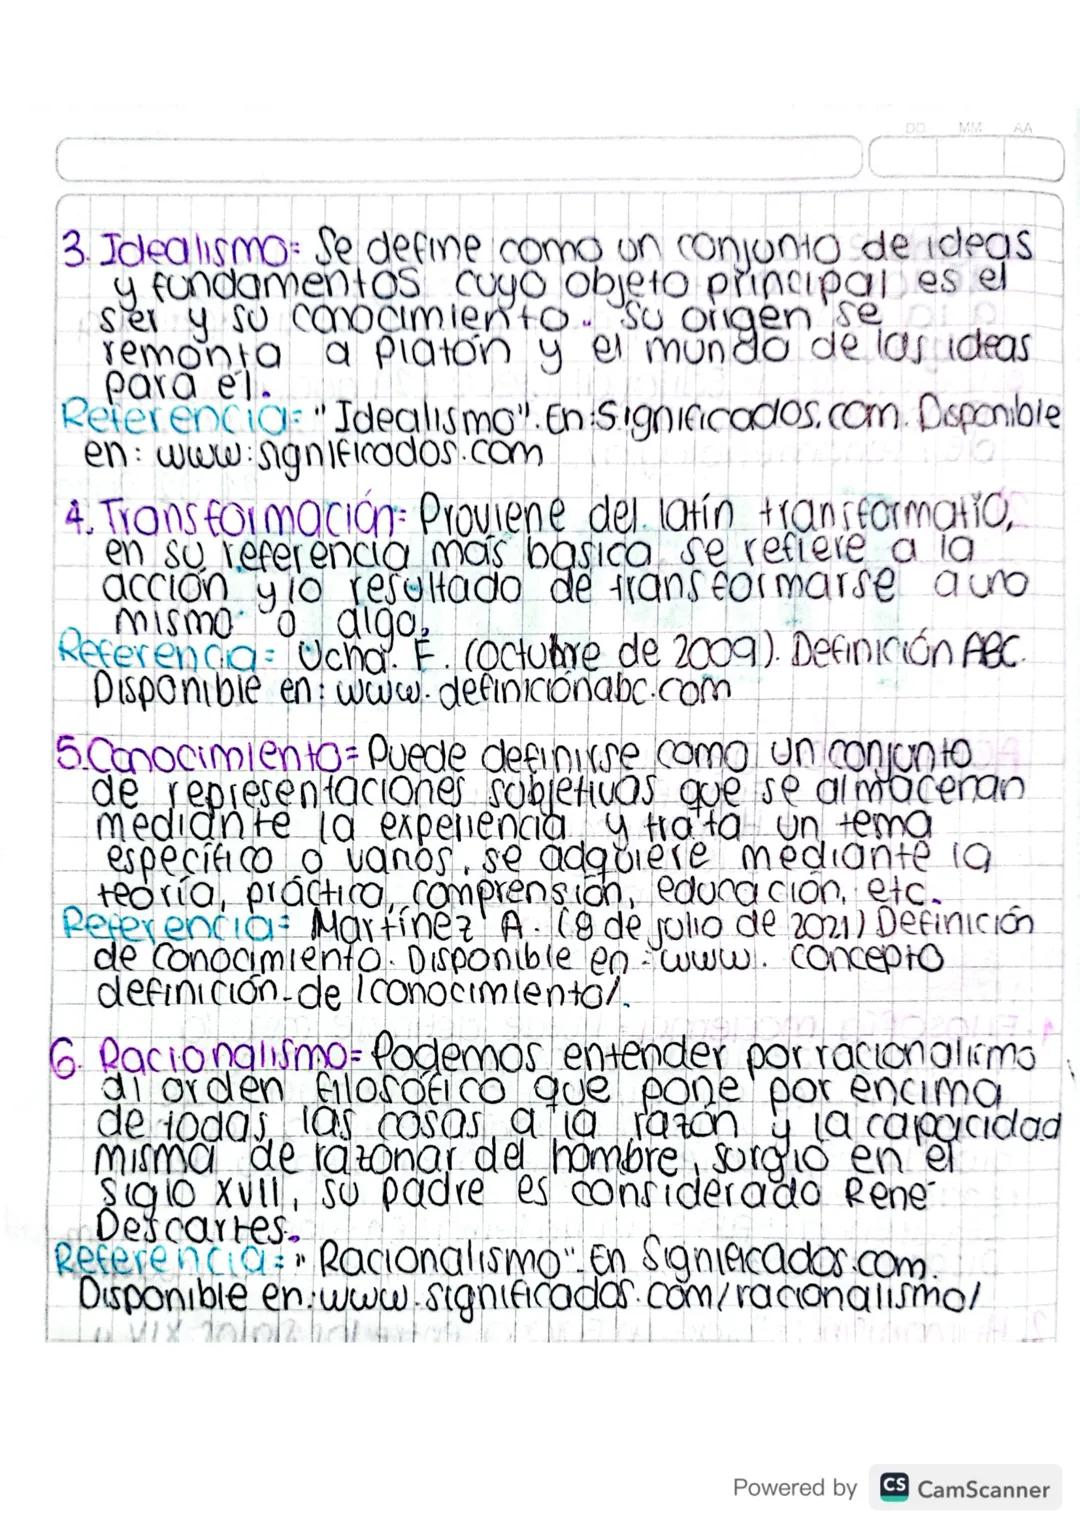 DD MM AA
3. Idealismo= Se define como un conjunto de ideas
y fundamentos cuyo objeto principal es el
ser y su conocimiento. Su origen se
remonta a Platón y el mundo de las ideas
para él.
Referencia= "Idealismo". En: Significados.com. Disponible
en: www.significados.com
4. Transformación= Proviene del latín transformatio,
en su referencia más básica se refiere a la
acción y lo resultado de transformarse a uno
mismo o algo.
Referencia= Ucha. F. (octubre de 2009). Definición ABC.
Disponible en: www.definiciónabc.com
5. Conocimiento= Puede definirse como un conjunto
de representaciones subjetivas que se almacenan
mediante la experiencia y trata un tema
específico o varios, se adquiere mediante la
teoría, práctica, comprensión, educación, etc.
Referencia= Martínez A. (8 de julio de 2021) Definición
de Conocimiento. Disponible en = www. concepto
definición-de/conocimiento/.
6. Racionalismo= Podemos entender por racionalismo
al orden filosófico que pone por encima
de todas las cosas a la razón y la capacidad
misma de razonar del hombre, surgió en el
siglo XVII, su padre es considerado René
Descartes.
Referencia= "Racionalismo". En Significados.com.
Disponible en: www.significados.com/racionalismo/
Powered by CS CamScanner